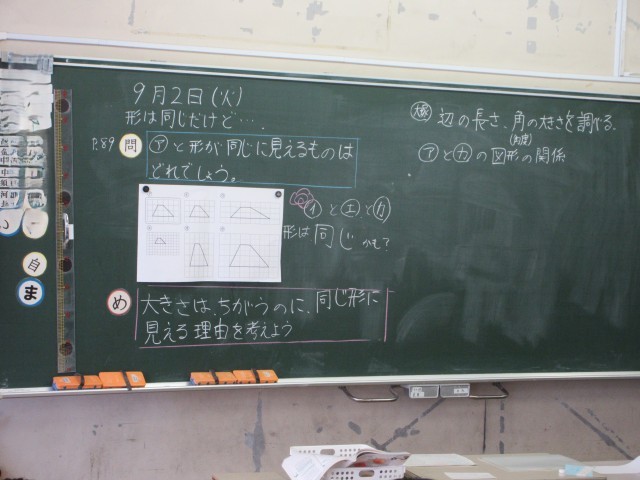 9月2日(火)
形は同じだけど…
P.89
問
㋐と形が同じに見えるものは
どれでしょう。
㋑と㋓と㋕
形は同じかも?
め
大きさは、ちがうのに、同じ形に
見える理由を考えよう
辺の長さ、角の大きさを調べる。
(角度)
㋐と㋕の図形の関係
自
ま